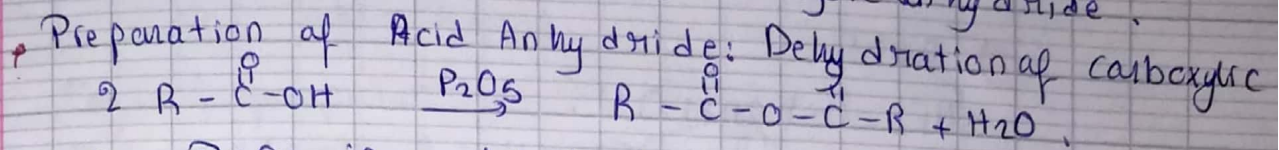 hydride.
Preparation of Acid Anhydride: Dehydration of carboxylic
O O O
|| || ||
2 R - C - OH P2O5 → R - C - O - C - R + H2O.